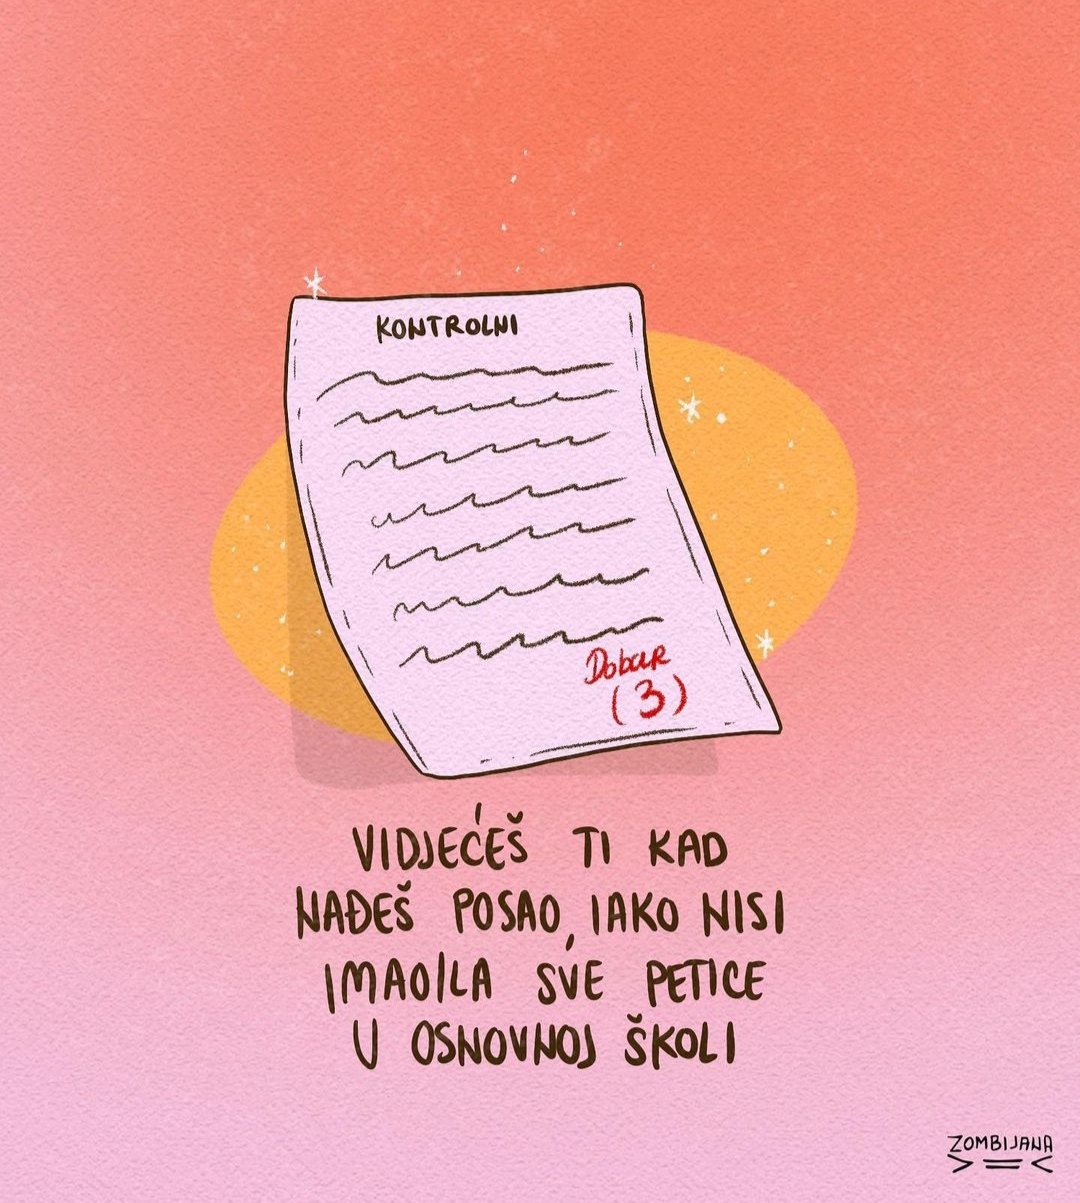 KONTROLNI
Dobar
(3)
VIDJEĆEŠ TI KAD
NAĐEŠ POSAO, IAKO NISI
IMAO/LA SVE PETICE
U OSNOVNOJ ŠKOLI
ZOMBIJANA